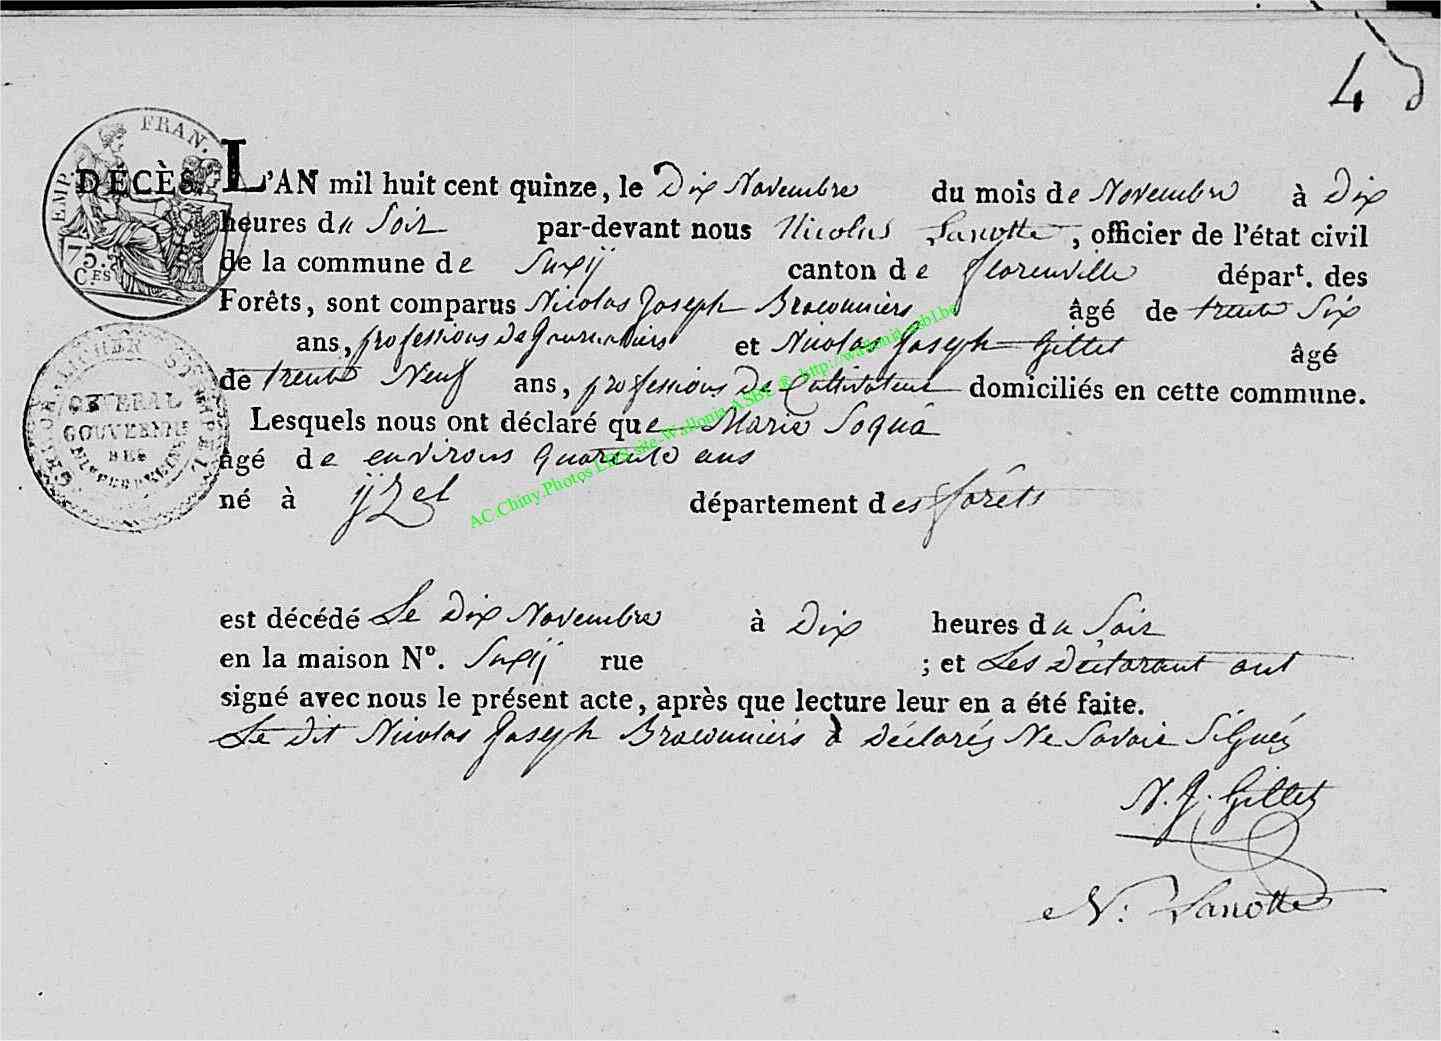 4
EMP. FRAN.
75. CES
DÉCÈS. L'AN mil huit cent quinze, le Dix Novembre du mois de Novembre à Dix
heures du Soir par-devant nous Nicolas Lanotte, officier de l'état civil
de la commune de Suxÿ canton de florenville départ. des
Forêts, sont comparus Nicolas Joseph Braconniers âgé de trente Six
ans, professions de et Nicolas Joseph Gillet âgé
de trente Neuf ans, professions De Cultivateur domiciliés en cette commune.
Lesquels nous ont déclaré que Marie Soquá
âgé de environs Quarente ans
né à ÿzel département des forêts
est décédé Le Dix Novembre à Dix heures du Soir
en la maison No. Suxÿ rue ; et Les Déclarant ont
signé avec nous le présent acte, après que lecture leur en a été faite.
Le dit Nicolas Joseph Braconniers à déclarés Ne Savoir Signés
N. J. Gillet
N: Lanotte
GENERAL
GOUVERNEM
DES
AC.Chiny.Photos.LDS.site-Wallonia-ASBL ® http://wallonia-asbl.be